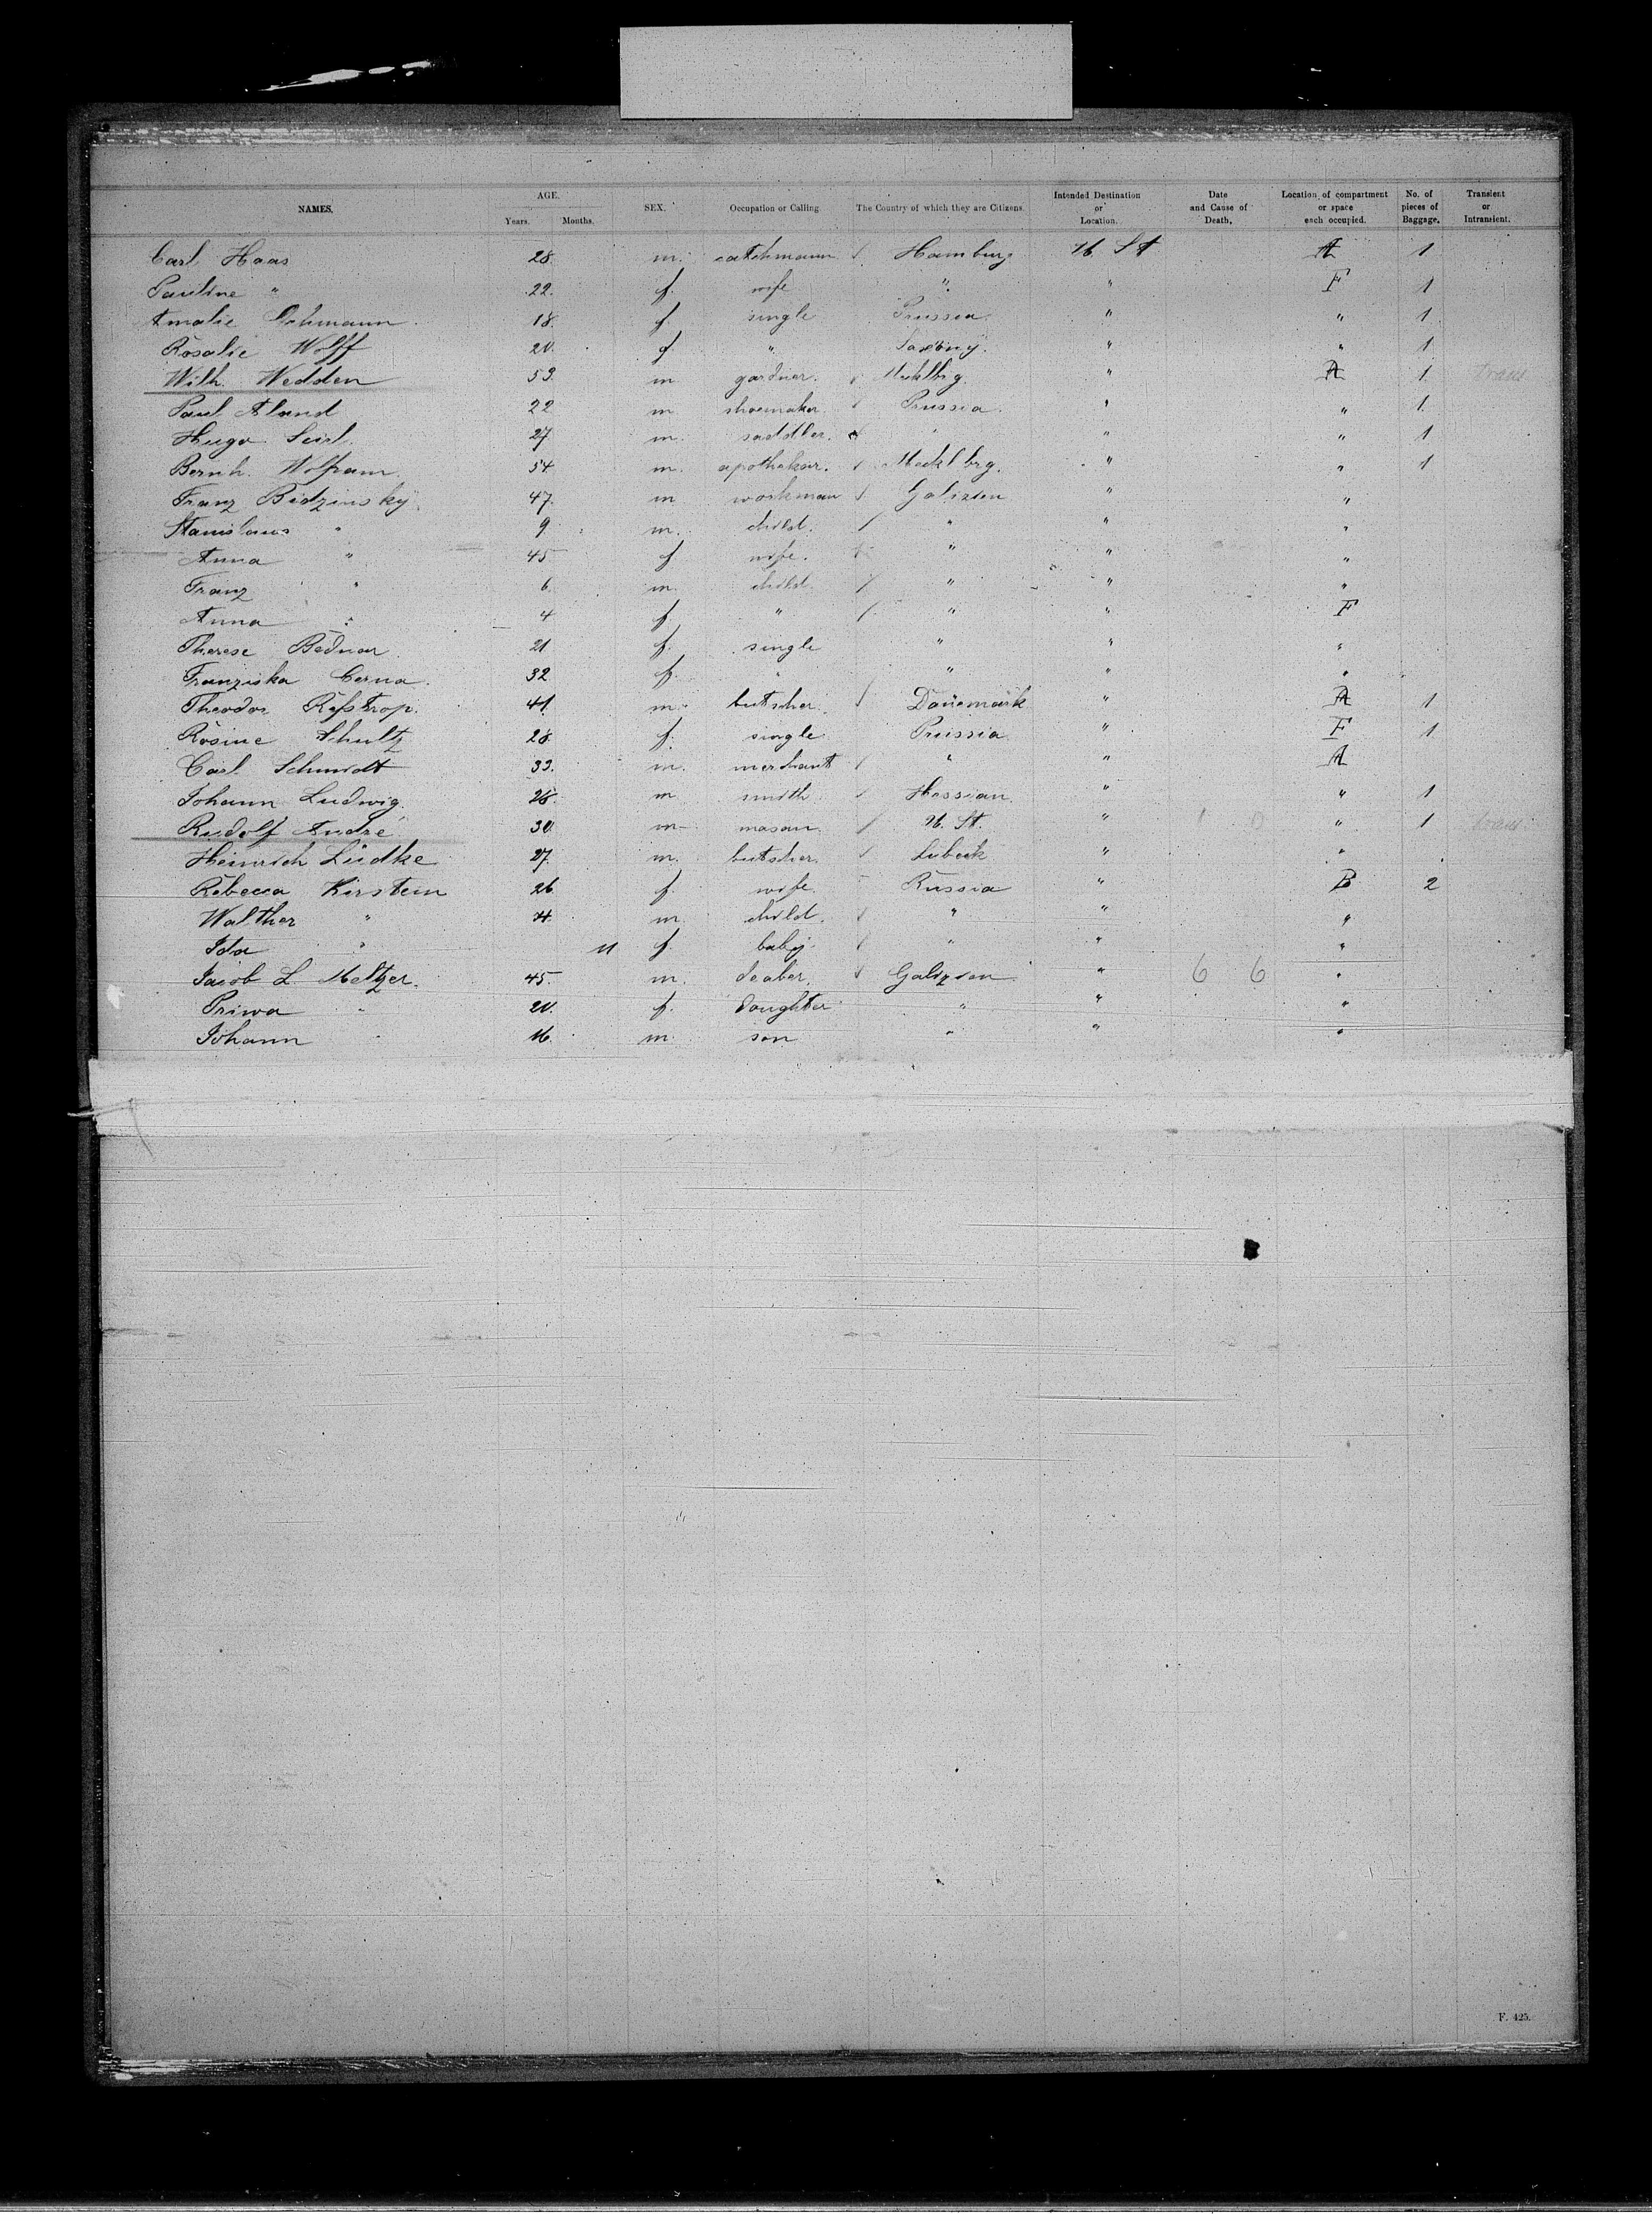 NAMES. AGE. Years. Months. SEX. Occupation or Calling The Country of which they are Citizens. Intended Destination or Location. Date and Cause of Death. Location of compartment or space each occupied. No. of pieces of Baggage. Transient or Intransient.
Carl Haas 28. m. Hamburg U. St A 1
Pauline " 22. f. wife " " F 1
Amalie 18. f. single Prussia " " 1
Rosalie Wolff 20. f. " Saxony. " " 1
Wilh. Wedden 53. m gardner. " A 1 trans
Paul Aland 22 m shoemaker Prussia. " " 1
Hugo 27 m. saddler. " " " 1
Bernh. Wolfram 54 m. apothekar. Mecklbrg. " " 1
Franz Bidzinsky 47. m workman Galizien " "
Stanislaus " 9 m. child. " " "
Anna " 45 f wife. " " "
Franz " 6 m. child. " " "
Anna " 4 f " " " F
Therese Bednar 21 f. single " " "
Franziska Cerna. 32 f. " " " "
Theodor 41. m. butscher. Dänemark " A 1
Rosine Schultz 28. f. single Prussia " F 1
Carl Schmidt 33. m. merchant " " A
Johann Ludwig. 28. m smith Hessian " " 1
Rudolf André 30 m mason. U. St. " 1 0 " 1 trans
Heinrich Lüdke 27. m. butscher. Lubeck " "
Rebecca Kirstein 26 f. wife. Russia " B 2
Walther " 4. m. child. " " "
Ida " 11 f. baby " " "
Jacob L. Meltzer. 45. m. dealer. Galizien " 6 6 "
Priwa " 20. f. daughter " " "
Johann " 16. m. son " " "
F. 425.